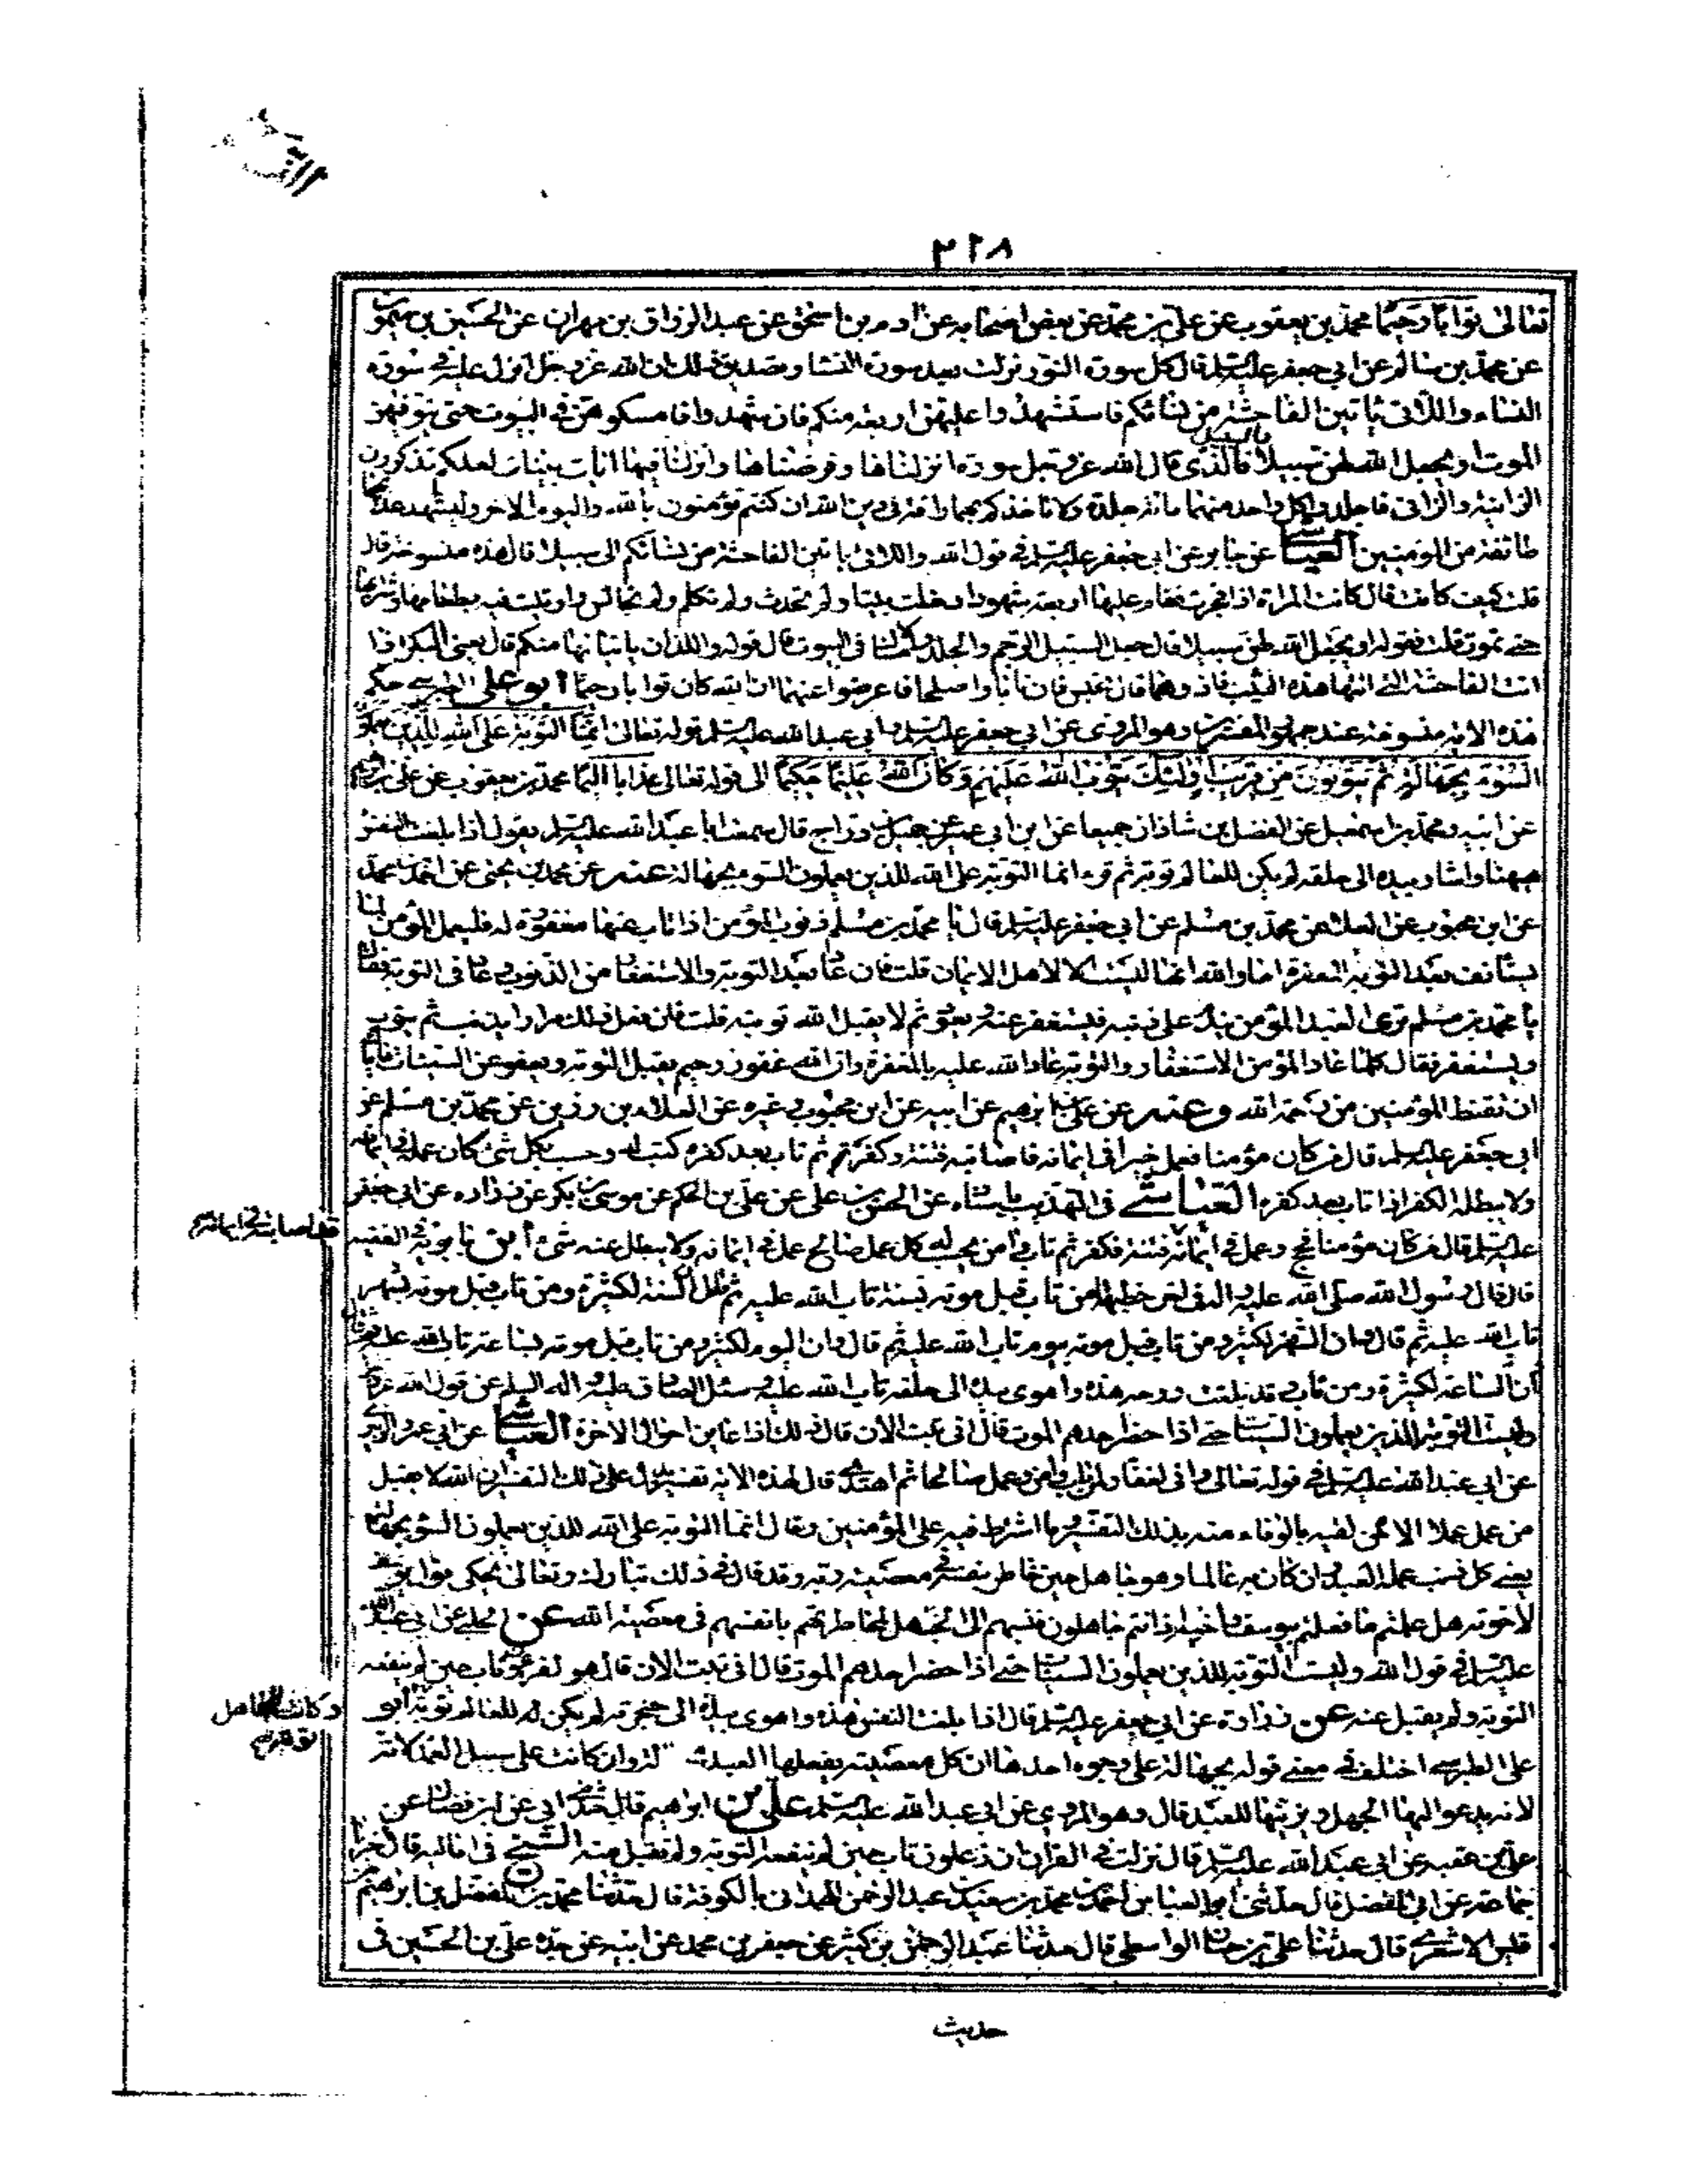 ٣٢٨
تعالى توابا رحيما محمد بن يعقوب عن علي بن محمد عن بعض اصحابه عن ادم بن اسحق عن عبد الرزاق بن مهران عن الحسين بن ميمون
عن محمد بن سالم عن ابي جعفر عليه السلم قال كل سورة النور نزلت بعد سورة النساء وتصديق ذلك ان الله عز وجل انزل عليه في سورة
النساء واللاتي ياتين الفاحشة من نسائكم فاستشهدوا عليهن اربعة منكم فان شهدوا فامسكوهن في البيوت حتى يتوفيهن
الموت او يجعل الله لهن سبيلا فالسبيل الذي قال الله عز وجل سورة انزلناها وفرضناها وانزلنا فيها ايات بينات لعلكم تذكرون
الزانية والزاني فاجلدوا كل واحد منهما مائة جلدة ولا تاخذكم بهما رافة في دين الله ان كنتم تؤمنون بالله واليوم الاخر وليشهد عذابهما
طائفة من المؤمنين العياشي عن جابر عن ابي جعفر عليه السلم في قول الله واللاتي ياتين الفاحشة من نسائكم الى سبيلا قال هذه منسوخة قال
قلت كيف كانت قال كانت المراة اذا فجرت فقام عليها اربعة شهود ادخلت بيتا ولم تحدث ولم تكلم ولم تجالس واوتيت فيه بطعامها وشرابها
حتى تموت قلت فقوله او يجعل الله لهن سبيلا قال جعل السبيل الرجم والجلد والامساك في البيوت قال قوله واللذان ياتيانها منكم قال يعني البكر اذا
اتت الفاحشة التي اتتها هذه الثيب فاذوهما قال تحبس فان تابا واصلحا فاعرضوا عنهما ان الله كان توابا رحيما ابو علي الطبرسي حكم
هذه الاية منسوخة عند جمهور المفسرين وهو المروي عن ابي جعفر عليه السلم وابي عبد الله عليه السلم قوله تعالى انما التوبة على الله للذين يعملون
السوء بجهالة ثم يتوبون من قريب فاولئك يتوب الله عليهم وكان الله عليما حكيما الى قوله تعالى عذابا اليما محمد بن يعقوب عن علي بن ابرهيم
عن ابيه ومحمد بن اسمعيل عن الفضل بن شاذان جميعا عن ابن ابي عمير عن جميل بن دراج قال سمعت ابا عبد الله عليه السلم يقول اذا بلغت النفس
ههنا واشار بيده الى حلقه لم يكن للعالم توبة ثم قرء انما التوبة على الله للذين يعملون السوء بجهالة وعنه عن محمد بن يحيى عن احمد بن محمد
عن ابن محبوب عن العلا عن محمد بن مسلم عن ابي جعفر عليه السلم قال يا محمد بن مسلم ذنوب المؤمن اذا تاب عنها مغفورة له فليعمل المؤمن لما
يستانف بعد التوبة والمغفرة اما والله انها ليست الا لاهل الايمان قلت فان عاد بعد التوبة والاستغفار من الذنوب وعاد في التوبة فقال
يا محمد بن مسلم ترى العبد المؤمن يندم على ذنبه فيستغفر عنه ويتوب ثم لا يقبل الله توبته قلت فان فعل ذلك مرارا يذنب ثم يتوب
ويستغفر فقال كلما عاد المؤمن الاستغفار والتوبة عاد الله عليه بالمغفرة وان الله غفور رحيم يقبل التوبة ويعفو عن السيئات فاياك
ان تقنط المؤمنين من رحمة الله وعنه عن علي بن ابرهيم عن ابيه عن ابن محبوب وغيره عن العلاء بن رزين عن محمد بن مسلم عن
ابي جعفر عليه السلم قال من كان مؤمنا فعمل خيرا في ايمانه فاصابته فتنة وكفر ثم تاب بعد كفره كتب له وحسب بكل شئ كان عمله في ايمانه
ولا يبطله الكفر اذا تاب بعد كفره العياشي في التهذيب باسناده عن الحسين بن علي عن علي بن الحكم عن موسى بن بكر عن زرارة عن ابي جعفر
عليه السلم قال من كان مؤمنا فحج وعمل في ايمانه فتنة فكفر ثم تاب وامن يحسب له كل عمل صالح عمل في ايمانه ولا يبطل عنه شئ ابن بابويه في الفقيه
قد اصابته في ايمانه
قال قال رسول الله صلى الله عليه واله في اخر خطبها من تاب قبل موته بسنة تاب الله عليه ثم قال ان السنة لكثيرة ومن تاب قبل موته بشهر
تاب الله عليه ثم قال وان الشهر لكثير ومن تاب قبل موته بيوم تاب الله عليه ثم قال وان اليوم لكثير ومن تاب قبل موته بساعة تاب الله عليه ثم قال
ان الساعة لكثيرة ومن تاب وقد بلغت روحه هذه واهوى بيده الى حلقه تاب الله عليه وسئل الصادق عليه السلم عن قول الله عز وجل
وليست التوبة للذين يعملون السيئات حتى اذا حضر احدهم الموت قال اني تبت الان قال ذلك اذا عاين احوال الاخرة العياشي عن ابي عمرو الزبيري
عن ابي عبد الله عليه السلم في قوله تعالى واني لغفار لمن تاب وامن وعمل صالحا ثم اهتدى قال لهذه الاية تفسير يدل على ذلك التفسير ان الله لا يقبل
من عمل عملا الا ممن لقيه بالوفاء منه بذلك التفسير وما اشترط فيه على المؤمنين وقال انما التوبة على الله للذين يعملون السوء بجهالة
يعني كل ذنب عمله العبد وان كان به عالما وهو جاهل حين خاطر بنفسه في معصية ربه وقد قال في ذلك تبارك وتعالى يحكي قول يوسف
لاخوته هل علمتم ما فعلتم بيوسف واخيه اذ انتم جاهلون فنسبهم الى الجهل لمخاطرتهم بانفسهم في معصية الله عن الحلبي عن ابي عبد الله
عليه السلم في قول الله وليست التوبة للذين يعملون السيئات حتى اذا حضر احدهم الموت قال اني تبت الان قال هو لفرعون تاب حين لم ينفعه
التوبة ولم يقبل عنه عن زرارة عن ابي جعفر عليه السلم قال اذا بلغت النفس هذه واهوى بيده الى حنجرته لم يكن للعالم توبة ابو
وكانت للجاهل
توبة
علي الطبرسي اختلف في معنى قوله بجهالة على وجوه احدها ان كل معصية يفعلها العبد جهالة وان كانت على سبيل العمد لانه
لانه يدعو اليها الجهل ويزينها للعبد قال وهو المروي عن ابي عبد الله عليه السلم علي بن ابراهيم قال حدثني ابي عن ابن فضال عن
علي بن عقبة عن ابي عبد الله عليه السلم قال نزلت في القران ان زعلون تاب حين لم ينفعه التوبة ولم تقبل منه الشيخ في اماليه قال اخبرنا
جماعة عن ابي المفضل قال حدثني ابو العباس احمد بن محمد بن سعيد بن عبد الرحمن الهمداني بالكوفة قال حدثنا محمد بن المفضل بن ابراهيم بن
قيس الاشعري قال حدثنا علي بن حسان الواسطي قال حدثنا عبد الرحمن بن كثير عن جعفر بن محمد عن ابيه عن جده علي بن الحسين في
حديث